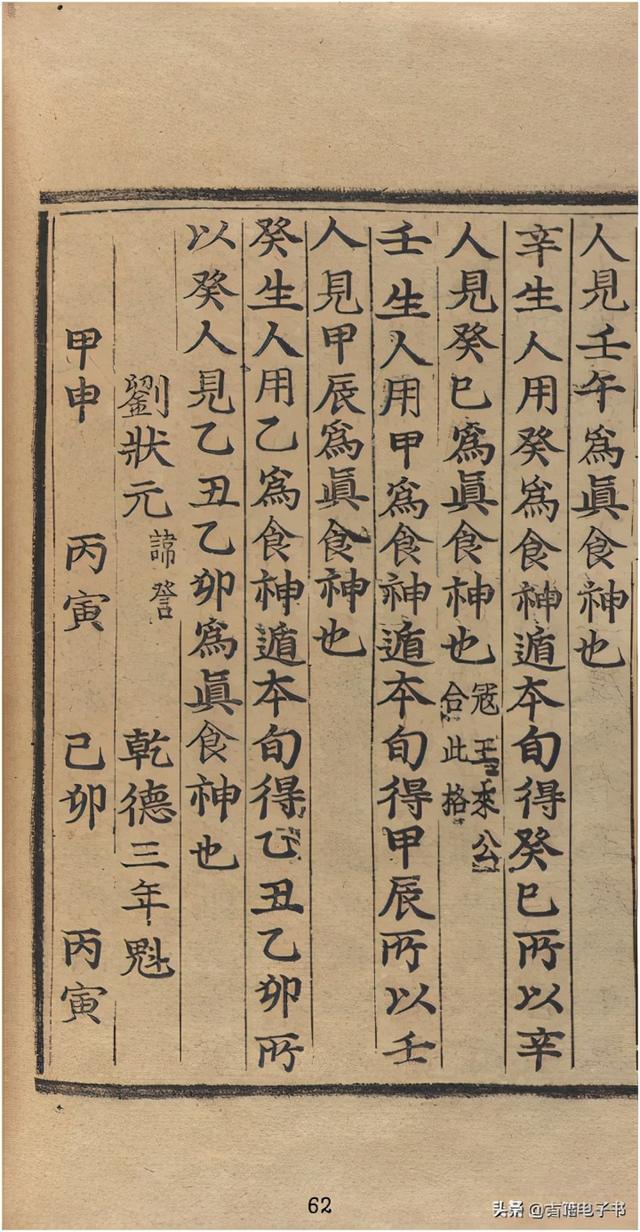 人見壬午爲眞食神也
辛生人用癸爲食神遁本旬得癸巳所以辛
人見癸巳爲眞食神也
冦王乘公
合此格
壬生人用甲爲食神遁本旬得甲辰所以壬
人見甲辰爲眞食神也
癸生人用乙爲食神遁本旬得乙丑乙卯所
以癸人見乙丑乙卯爲眞食神也
劉狀元
諱
乾德三年魁
甲申 丙寅 己卯 丙寅
62
头条 @古籍电子书